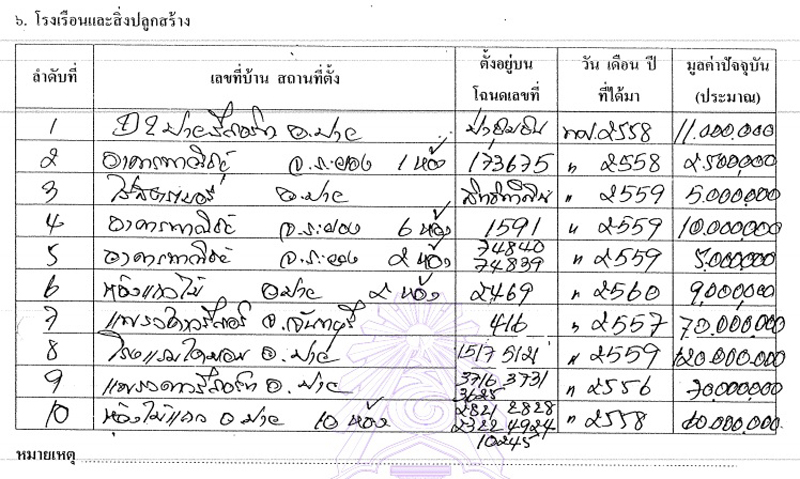 ๖. โรงเรือนและสิ่งปลูกสร้าง
ลำดับที่ เลขที่บ้าน สถานที่ตั้ง ตั้งอยู่บนโฉนดเลขที่ วัน เดือน ปี ที่ได้มา มูลค่าปัจจุบัน (ประมาณ)
1 อ.ปาย 2558 11.000.000
2 อาคารพาณิชย์ จ.ระยอง 1 ห้อง 173675 " 2558 2.500,000
3 อ.ปาย " 2559 5.000.000
4 อาคารพาณิชย์ จ.ระยอง 6 ห้อง 1591 " 2559 10.000,000
5 อาคารพาณิชย์ จ.ระยอง ๒ ห้อง 74840 74839 " 2559 5.000,000
6 ห้องแถวไม้ อ.ปาย ๒ ห้อง 2469 " 2560 9,000,000
7 จ.จันทบุรี 416 " 2557 70.000,000
8 โรงแรม อ.ปาย 1517 5121 " 2559 120.000.000
9 อ.ปาย 3716 3731 3625 " 2556 70000,000
10 ห้องไม้แถว อ.ปาย 10 ห้อง 2821 2828 2322 4924 10245 " 2558 60.000.000
หมายเหตุ